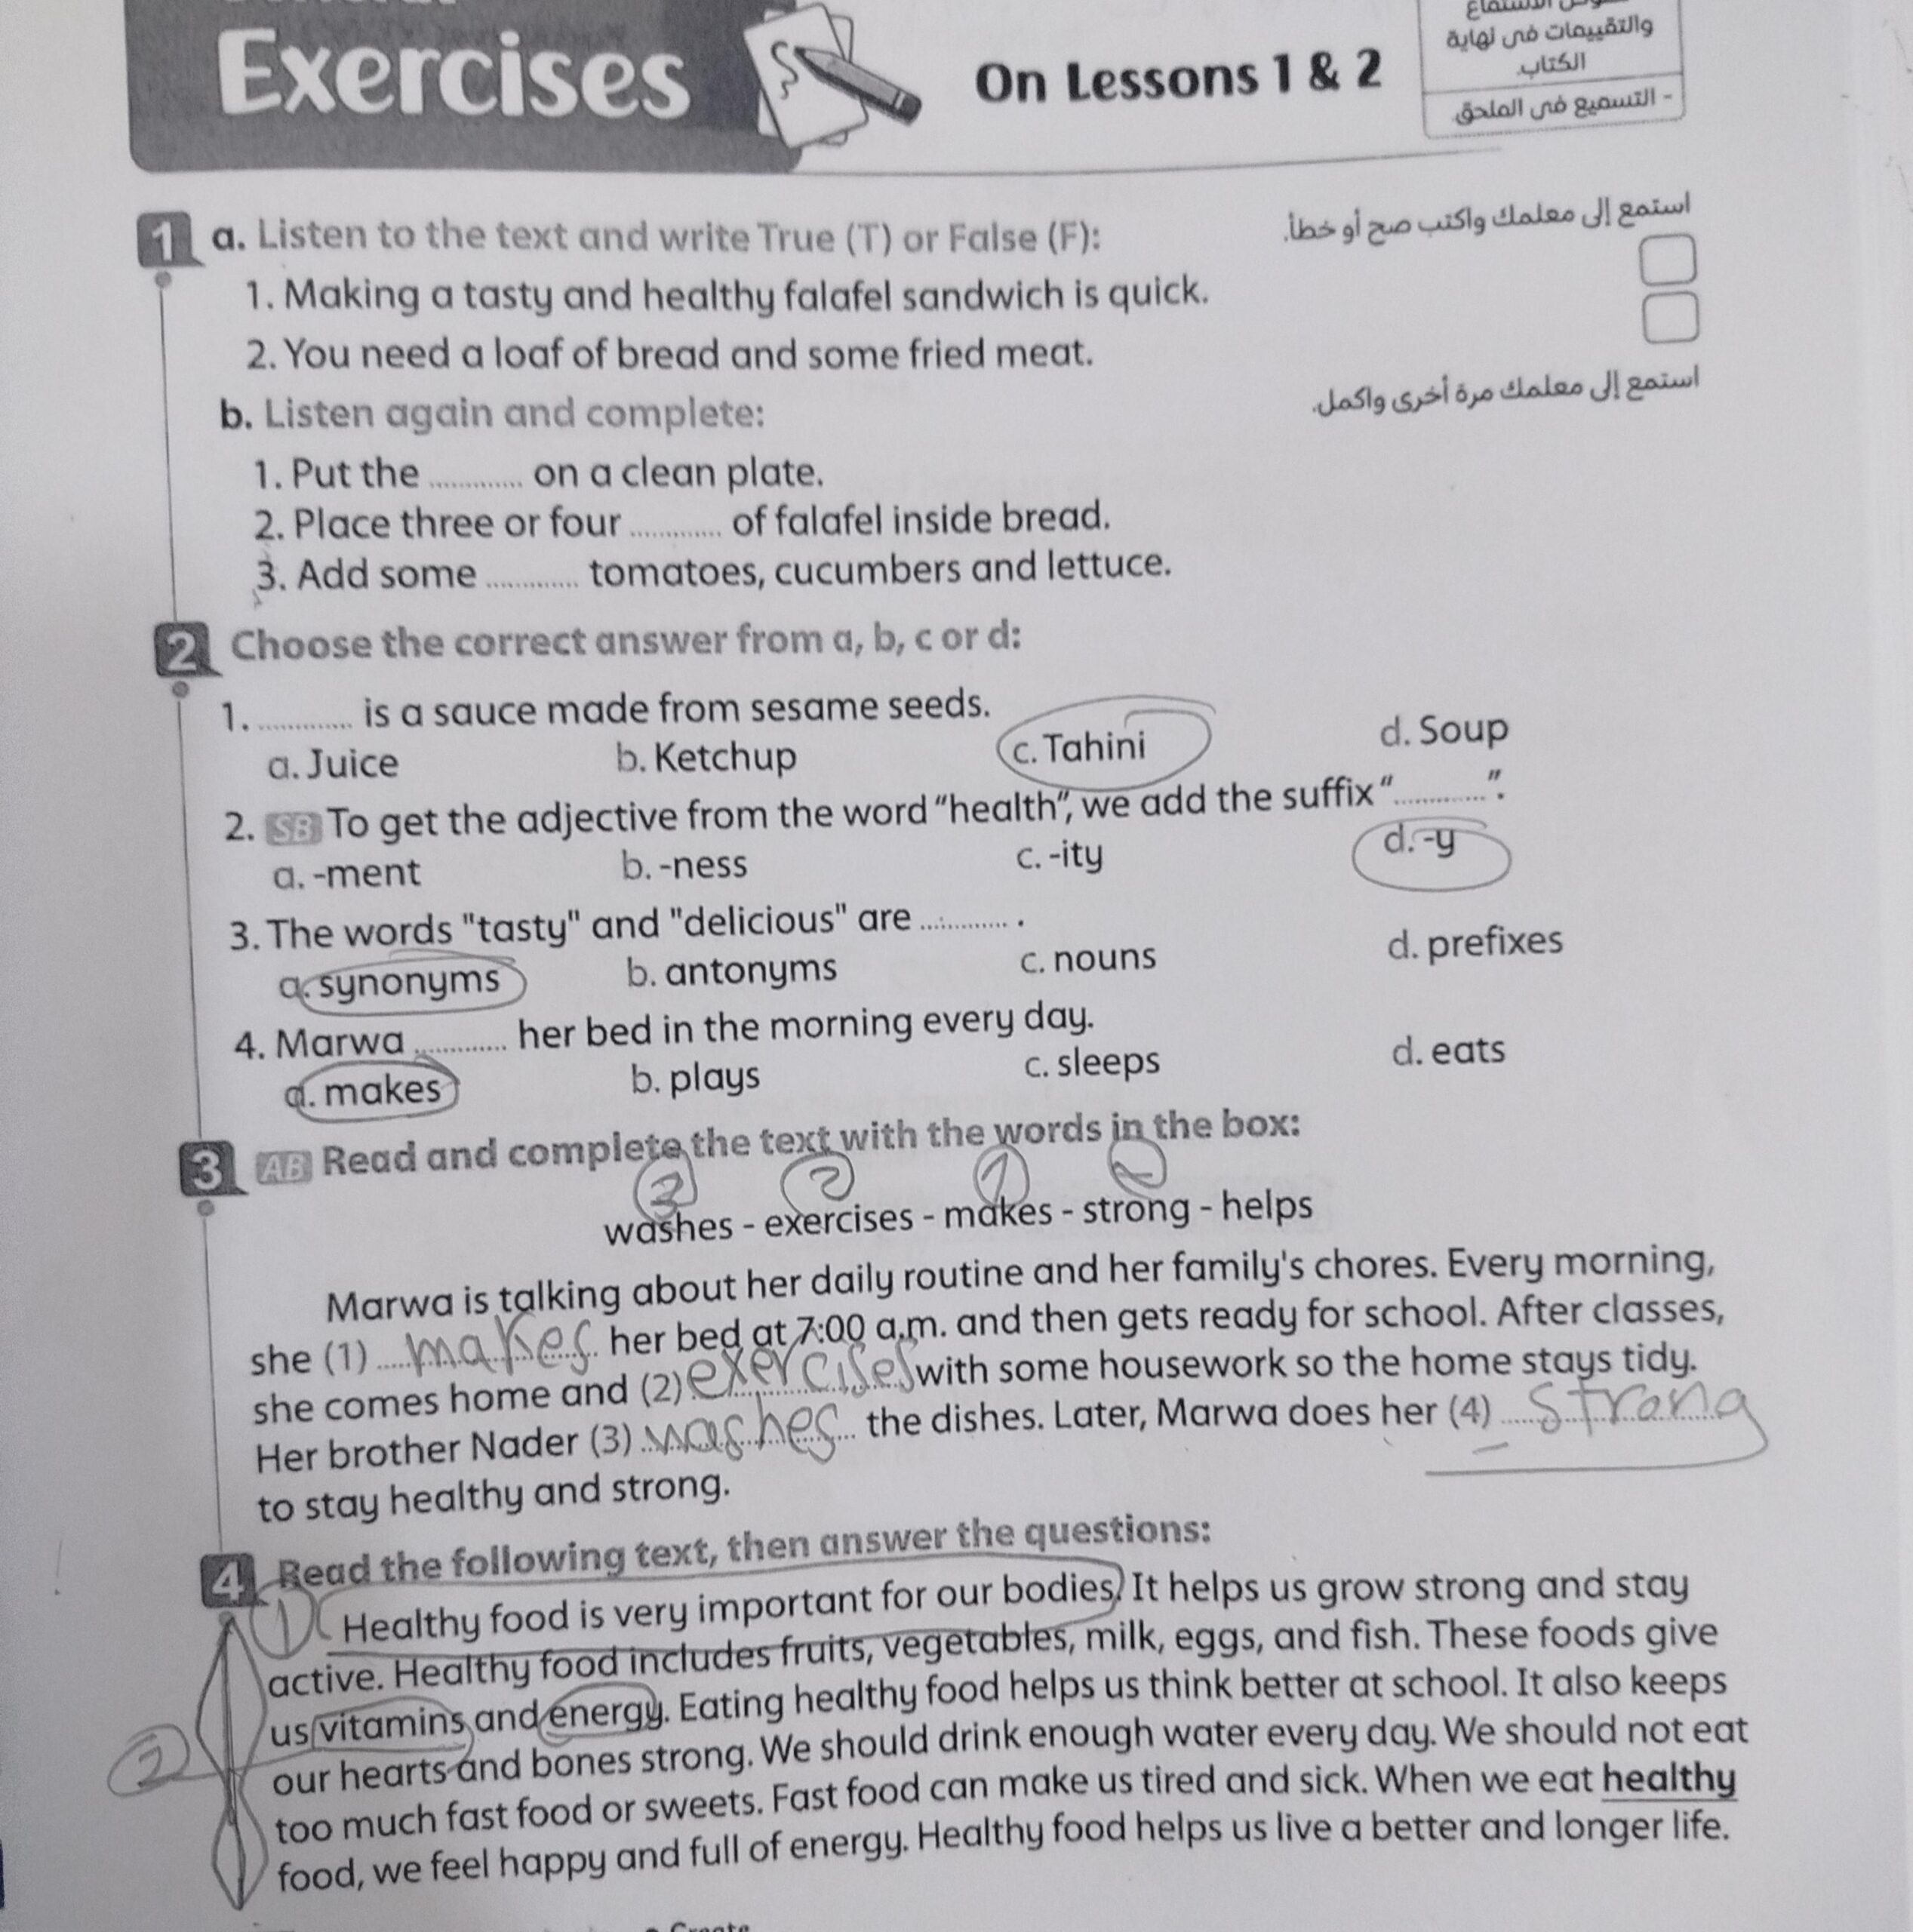 Exercises
On Lessons 1 & 2
والتقييمات فى نهاية
الكتاب.
- التسميع فى الملحق.
1 a. Listen to the text and write True (T) or False (F):
استمع إلى معلمك واكتب صح أو خطأ.
1. Making a tasty and healthy falafel sandwich is quick.
2. You need a loaf of bread and some fried meat.
b. Listen again and complete:
استمع إلى معلمك مرة أخرى واكمل.
1. Put the ............ on a clean plate.
2. Place three or four ............ of falafel inside bread.
3. Add some ............ tomatoes, cucumbers and lettuce.
2 Choose the correct answer from a, b, c or d:
1. ............ is a sauce made from sesame seeds.
a. Juice b. Ketchup c. Tahini d. Soup
2. SB To get the adjective from the word "health", we add the suffix "............".
a. -ment b. -ness c. -ity d. -y
3. The words "tasty" and "delicious" are ............ .
a. synonyms b. antonyms c. nouns d. prefixes
4. Marwa ............ her bed in the morning every day.
a. makes b. plays c. sleeps d. eats
3 AB Read and complete the text with the words in the box:
3 2 1
washes - exercises - makes - strong - helps
Marwa is talking about her daily routine and her family's chores. Every morning,
she (1) makes her bed at 7:00 a.m. and then gets ready for school. After classes,
she comes home and (2) exercises with some housework so the home stays tidy.
Her brother Nader (3) washes the dishes. Later, Marwa does her (4) strong
to stay healthy and strong.
4 Read the following text, then answer the questions:
1 Healthy food is very important for our bodies. It helps us grow strong and stay
active. Healthy food includes fruits, vegetables, milk, eggs, and fish. These foods give
us vitamins and energy. Eating healthy food helps us think better at school. It also keeps
2 our hearts and bones strong. We should drink enough water every day. We should not eat
too much fast food or sweets. Fast food can make us tired and sick. When we eat healthy
food, we feel happy and full of energy. Healthy food helps us live a better and longer life.